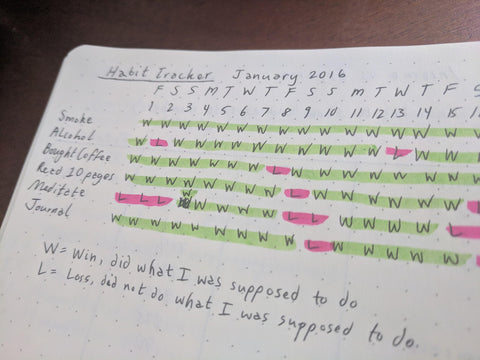 Habit Tracker January 2016
F S S M T W T F S S M T W T F S
1 2 3 4 5 6 7 8 9 10 11 12 13 14 15
Smoke W W W W W W W W W W W W W W W
Alcohol W L W W W W W W W W W W L W W
Bought Coffee W W W W W W W L W W W W W W W
Read 10 pages W W W W W W W W L W W W W W W L
Meditate L L L W W W W W L L W W W W L
Journal W W W W W W W W W L W W W W W
W = Win, did what I was supposed to do
L = Loss, did not do what I was supposed to do.